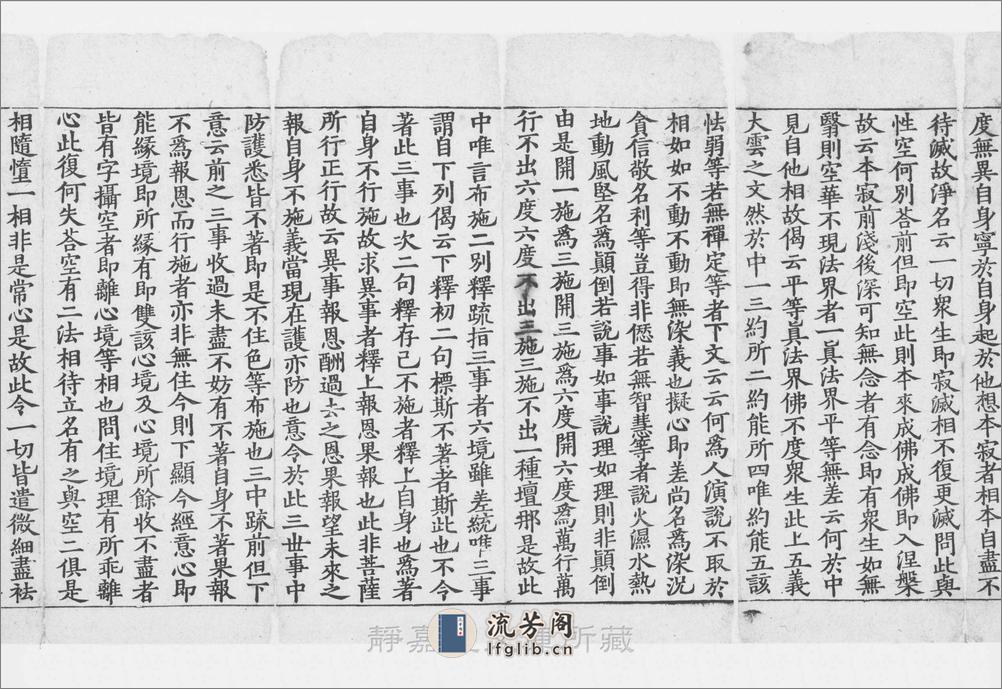 度無異自身寧於自身起於他想本寂者相本自盡不
待滅故淨名云一切衆生即寂滅相不復更滅問此與
性空何別荅前但即空此則本來成佛成佛即入涅槃
故云本寂前淺後深可知無念者有念即有衆生如無
瞖則空華不現法界者一眞法界平等無差云何於中
見自他相故偈云平等眞法界佛不度衆生此上五義
大雲之文然於中一三約所二約能所四唯約能五該
怯弱等若無禪定等者下文云云何爲人演說不取於
相如如不動不動即無染義也擬心即差尚名爲染況
貪信敬名利等豈得非僽若無智慧等者說火濕水熱
地動風堅名爲顚倒若說事如事說理如理則非顚倒
由是開一施爲三施開三施爲六度開六度爲萬行萬
行不出六度六度不出三施三施不出一種壇那是故此
中唯言布施二別釋䟽指三事者六境雖差統唯上三事
謂自下列偈云下釋初二句標斯不著者斯此也不令
著此三事也次二句釋存己不施者釋上自身也爲著
自身不行施故求異事者釋上報恩果報也此非菩薩
所行正行故云異事報恩酬過去之恩果報望未來之
報自身不施義當現在護亦防也意令於此三世事中
防護悉皆不著即是不住色等布施也三中䟽前但下
意云前之三事收過未盡不妨有不著自身不著果報
不爲報恩而行施者亦非無住今則下顯今經意心即
能緣境即所緣有即雙該心境及心境所餘收不盡者
皆有字攝空者即離心境等相也問住境理有所乖離
心此復何失荅空有二法相待立名有之與空二俱是
相隨憻一相非是常心是故此令一切皆遣微細盡袪
靜嘉堂文庫所藏
流芳阁
lfglib.cn